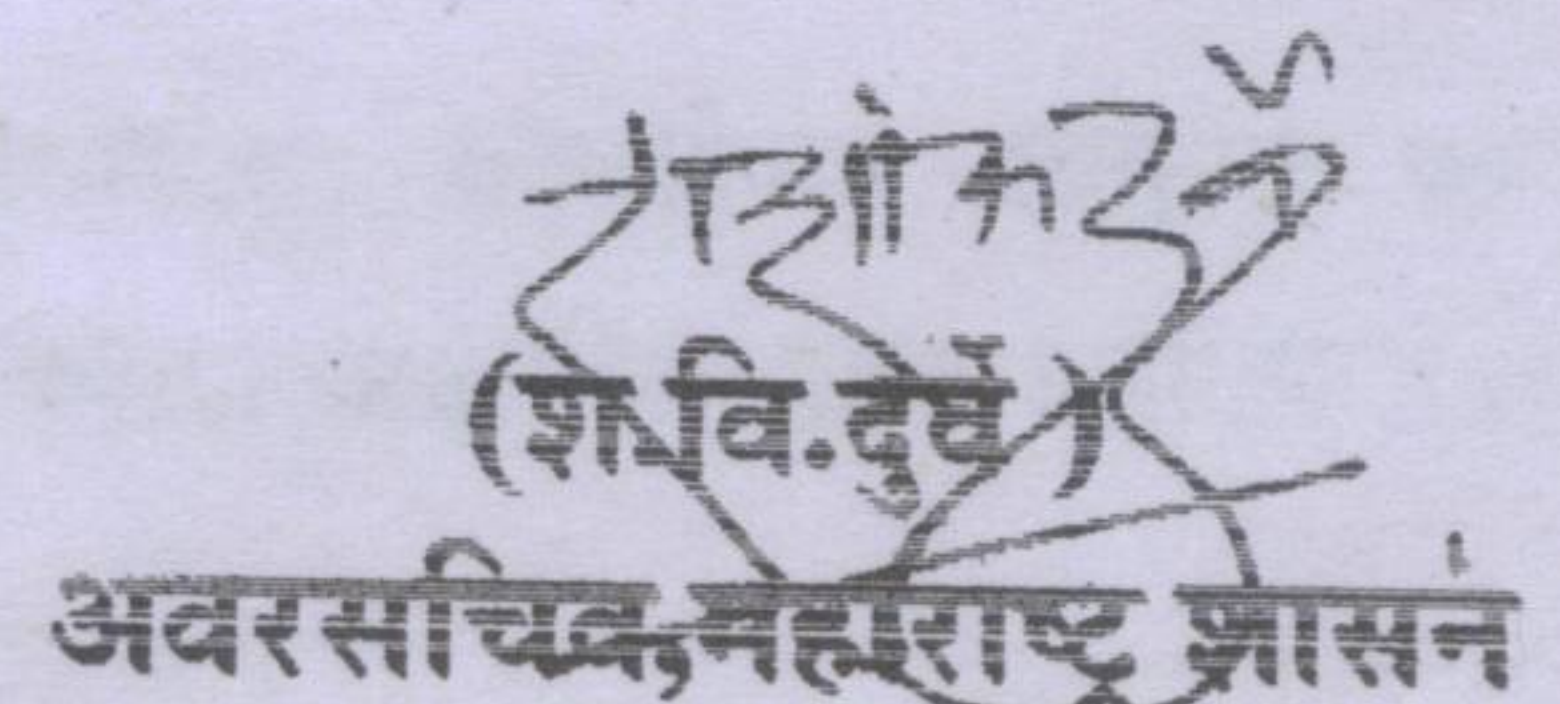 (श.वि.दुर्वे)
अवरसचिव,महाराष्ट्र शासन